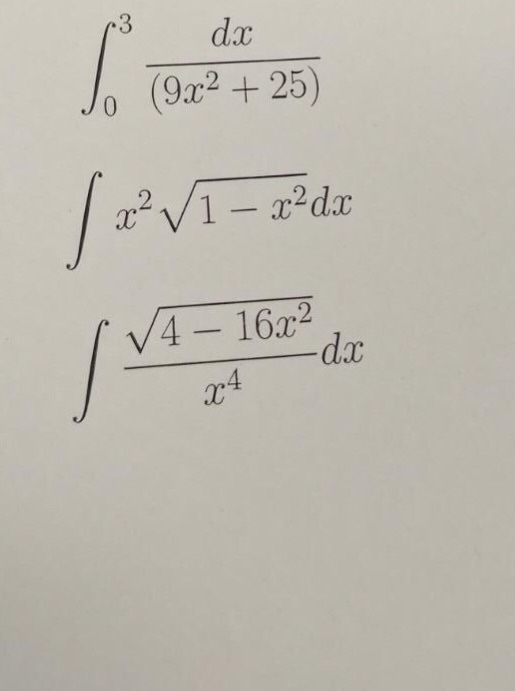 ∫₀³ dx/(9x² + 25)
∫ x²√(1 − x²)dx
∫ √(4 − 16x²)/x⁴ dx